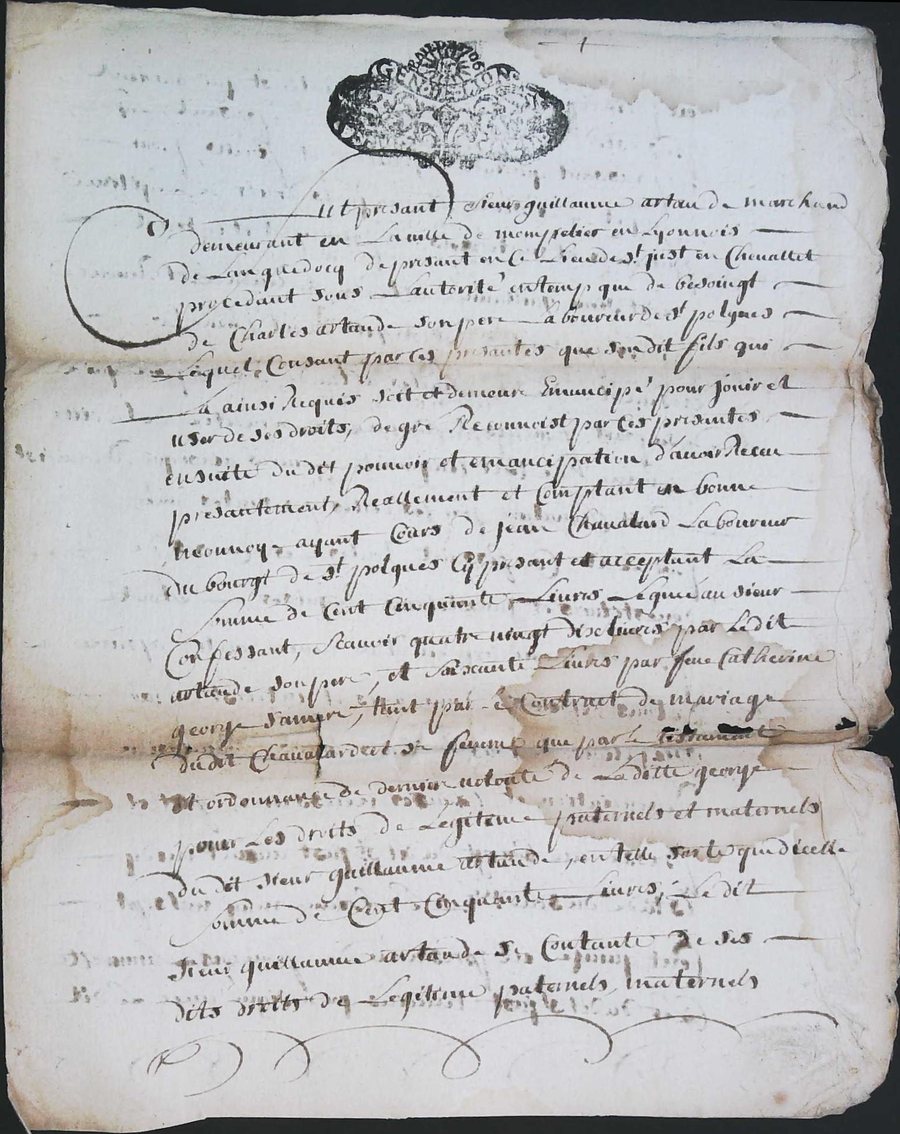 GEN. DE LION
fut presant sieur guillaume artaude marchand
demeurant en La ville de mompelier en Lyonnois
de Languedocq de presant en ce Lieu de st just en Chevallet
procedant sous Lautorité en temp que de besoingt
de Charles artaude son pere Laboureur de st polgues
Lequel Consant par ces presantes que sondit fils qui
La ainsi Requis soit et demeure Emancipé pour jouir et
user de ses droits, de gré Reconnoist par ces presantes
ensuite du dit pouvoir et emancipation, d'avoir Receu
presantement, Reallement et Comptant en bonne
ayant Cours de jean Chavalard Laboureur
du bourgt de st polgues Cy presant et acceptant La
somme de Cent Cinquante Livres Legué au sieur
Confessant, scavoir quatre vingt dix livres par Ledit
artaude son pere, et soixante Livres par feue Catherine
george sa mere, tant par Contract de mariage
du dit Chavalard et sa femme que par Le testament
et ordonnance de derniere volonté de Laditte george
pour Les droits de Legiteme paternels et maternels
du dit sieur guillaume artaude, en telle sorte que dicelle
somme de Cent Cinquante Livres, Le dit
sieur guillaume artaude se Contante de ses
dits droits de Legiteme paternels, maternels